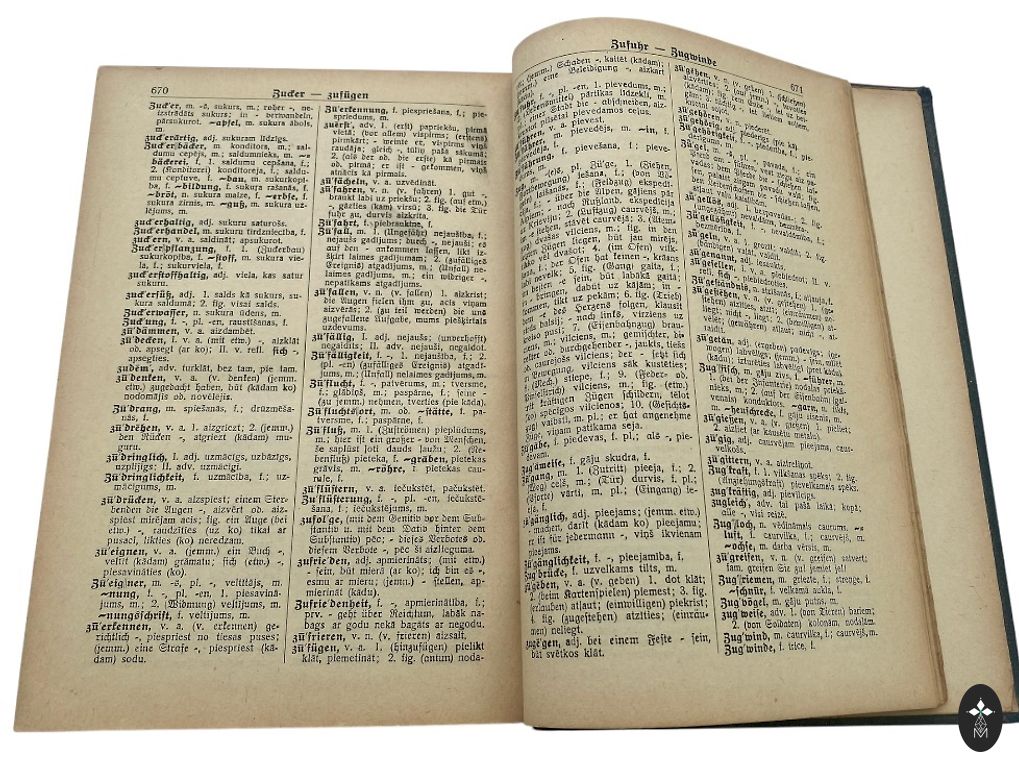 670
Zucker — zufügen
Zuck'er, m. -s, sukurs, m.; roher -, ne-
izstrādāts sukurs; in - verwandeln,
pārsukurot. ~apfel, m. sukura ābols,
m.
zuck'erārtig, adj. sukuram līdzīgs.
Zuck'erbäcker, m. konditors, m.; sal-
dumu cepējs, m.; saldumnieks, m. ~=
bäckerei, f. 1. saldumu cepšana, f.;
2. (Konditorei) konditoreja, f.; saldu-
mu ceptuve, f. ~bau, m. sukurkopī-
ba, f. ~bildung, f. sukura rašanās, f.
~brōt, n. sukura maize, f. ~erbse, f.
sukura zirnis, m. ~guß, m. sukura uz-
lējums, m.
zuck'erhaltig, adj. sukuru saturošs.
Zuck'erhandel, m. sukuru tirdzniecība, f.
zuck'ern, v. a. saldināt; apsukurot.
Zuck'erpflanzung, f. 1. (Zuckerbau)
sukurkopība, f. ~stoff, m. sukura vie-
la, f.; sukurviela, f.
zuck'erstoffhaltig, adj. viela, kas satur
sukuru.
zuck'ersüß, adj. 1. salds kā sukurs, su-
kura saldumā; 2. fig. visai salds.
Zuck'erwasser, n. sukura ūdens, m.
Zuck'ung, f. -, pl. -en, raustīšanas, f.
zū'dämmen, v. a. aizdambēt.
zū'decken, I. v. a. (mit etw.) -, aizklāt
od. apsegt (ar ko); II. v. refl. sich -,
apsegties.
zudēm', adv. turklāt, bez tam, pie tam.
zū'denken, v. a. (v. denken) (jemm.
etw.) zugedacht haben, būt (kādam ko)
nodomājis od. novēlējis.
Zū'drang, m. spiešanās, f.; drūzmēša-
nās, f.
zū'drēhen, v. a. 1. aizgriezt; 2. (jemm.)
den Rücken -, atgriezt (kādam) mu-
guru.
zū'dringlich, I. adj. uzmācīgs, uzbāzīgs,
uzplijīgs; II. adv. uzmācīgi.
Zū'dringlichkeit, f. uzmācība, f.; uz-
mācīgums, m.
zū'drücken, v. a. aizspiest; einem Ster-
benden die Augen -, aizvērt od. aiz-
spiest mirējam acis; fig. ein Auge (bei
etw.) -, raudzīties (uz ko) tikai ar
pusaci, likties (ko) neredzam.
zū'eignen, v. a. (jemm.) ein Buch -,
veltīt (kādam) grāmatu; sich (etw.) -,
piesavināties (ko).
Zū'eigner, m. -s, pl. -, veltītājs, m.
~nung, f. -, pl. -en, 1. piesavinā-
jums, m.; 2. (Widmung) veltījums, m.
~nungsschrift, f. veltījums, m.
zū'erkennen, v. a. (v. erkennen) ge-
richtlich -, piespriest no tiesas puses;
(jemm.) eine Strafe -, piespriest (kā-
dam) sodu.
Zū'erkennung, f. piespriešana, f.; pie-
spriedums, m.
zuērst', adv. 1. (erst) papriekšu, pirmā
vietā; (vor allem) vispirms; (erstens)
pirmkārt; - weinte er, vispirms viņš
raudāja; gleich -, tūliņ pašā sākumā;
2. (als der od. die erste) kā pirmais
od. pirmā; er ist - gekommen, viņš
atnācis kā pirmais.
zū'fächeln, v. a. uzvēdināt.
zū'fahren, v. n. (v. fahren) 1. gut -,
braukt labi uz priekšu; 2. fig. (auf etw.)
-, gāzties (kam) virsū; 3. fig. die Tür
fuhr zu, durvis aizkrita.
Zū'fahrt, f. piebraukšana, f.
Zū'fall, m. 1. (Ungefähr) nejaušība, f.;
nejaušs gadījums; durch -, nejauši; es
auf den - ankommen lassen, likt iz-
šķirt laimes gadījumam; 2. (zufälliges
Ereignis) atgadījums, m.; (Unfall) ne-
laimes gadījums, m.; ein widriger -,
nepatīkams atgadījums.
zū'fallen, v. n. (v. fallen) 1. aizkrist;
die Augen fielen ihm zu, acis viņam
aizvērās; 2. (zu teil werden) die uns
zugefallene Aufgabe, mums piešķirtais
uzdevums.
zū'fällig, adj. nejaušs; (unverhofft)
negaidīts; II. adv. nejauši, negaidot.
Zū'fälligkeit, f. -, 1. nejaušība, f.; 2.
(pl. -en) (zufälliges Ereignis) atgadī-
jums, m.; (Unfall) nelaimes gadījums, m.
Zū'flucht, f. -, patvērums, m.; tversme,
f.; glābiņš, m.; paspārne, f.; seine -
(zu jemm.) nehmen, tverties (pie kāda).
Zū'fluchtsort, m. od. ~stätte, f. pa-
tversme, f.; paspārne, f.
Zū'fluß, m. 1. (Zuströmen) pieplūdums,
m.; hier ist ein großer - von Menschen,
še saplūst ļoti daudz ļaužu; 2. (Ne-
benfluß) pieteka, f. ~gräben, pietekas
grāvis, m. ~röhre, f. pietekas cau-
rule, f.
zū'flüstern, v. a. iečukstēt, pačukstēt.
Zū'flüsterung, f. -, pl. -en, iečukstē-
šana, f.; iečukstējums, m.
zufol'ge, (mit dem Genitiv vor dem Sub-
stantiv u. mit dem Dativ hinter dem
Substantiv) pēc; - dieses Verbotes od.
diesem Verbote -, pēc šī aizlieguma.
zufrie'den, adj. apmierināts; (mit etw.)
- sein, būt mierā (ar ko); ich bin es -,
esmu ar mieru; (jemm.) - stellen, ap-
mierināt (kādu).
Zufrie'denheit, f. -, apmierinātība, f.;
prv. - geht über Reichtum, labāk na-
bags ar godu nekā bagāts ar negodu.
zū'frieren, v. n. (v. frieren) aizsalt.
zū'fügen, v. a. 1. (hinzufügen) pielikt
klāt, piemetināt; 2. fig. (antun) noda-
Zufuhr — Zugwinde
671
(jemm.) Schaden -, kaitēt (kādam);
(jemm.) eine Beleidigung -, aizkart
f. -, pl. -en, 1. pievedums, m.;
pārtikas līdzekļi, m.
einer Stadt die - abschneiden, aiz-
pilsētai pievedamos ceļus.
v. a. pievest.
m. pievedējs, m. ~in, f.
f. pievešana, f.; pieve-
pl. Zü'ge, 1. (Ziehen,
bewegung) iešana, f.; (von Vö-
f.; (Feldzug) ekspedī-
über die Alpen, gājiens pār
nach Rußland, ekspedicija
Krieviju; 2. (Luftzug) caurvējš, m.;
stehen, stāvēt caurvējā; 3. (Atem-
dvašas vilciens, m.; fig. in den
Zügen liegen, būt jau mirējs,
vēl dvašot; 4. (im Ofen) vilk-
f.; der Ofen hat feinen -, krāsns
nevelk; 5. fig. (Gang) gaita, f.;
- e sein, būt labākā gaitā;
bringen, dabūt uz kājām; in -
likt uz pekām; 6. fig. (Trieb)
- e des Herzens folgen, klausīt
balsij; - nach links, virziens uz
kreiso pusi; 7. (Eisenbahnzug) brau-
m.; vilciens, m.; gemischter od.
durchgehender -, jaukts, tiešs
od. caurejošs vilciens; der - setzt sich
Bewegung, vilciens sāk kustēties;
(Mech.) stiepe, f.; 9. (Feder- od.
Pinselstrich) vilciens, m.; fig. (etw.)
kräftigen Zügen schildern, tēlot
spēcīgos vilcienos; 10. (Gesichts-
zug) vaibsti, m. pl.; er hat angenehme
Züge, viņam patīkama seja.
Zū'gābe, f. piedevas, f. pl.; als -, pie-
devām.
Zūg'ameise, f. gāju skudra, f.
Zū'gang, m. 1. (Zutritt) pieeja, f.; 2.
(Weg) ceļš, m.; (Tür) durvis, f. pl.;
(Pforte) vārti, m. pl.; (Eingang) ie-
eja, f.
zū'gänglich, adj. pieejams; (jemm. etw.)
- machen, darīt (kādam ko) pieejamu;
er ist für jedermann -, viņš ikvienam
pieejams.
Zū'gänglichkeit, f. -, pieejamība, f.
Zūg'brücke, f. uzvelkams tilts, m.
zū'gēben, v. a. (v. geben) 1. dot klāt;
2. (beim Kartenspielen) piemest; 3. fig.
(erlauben) atļaut; (einwilligen) piekrist;
4. fig. (zugestehen) atzīties; (einräu-
men) neliegt.
zugē'gen, adj. bei einem Feste - sein,
būt svētkos klāt.
zū'gēhen, v. n. (v. gehen) 1. (schließen)
aizvērties; 2. (auf jemn.) - iet uz
(kādam);
zū'gehören, v. n. piederēt.
zū'gehörig, adj. piederīgs (pie kā).
Zū'gehörigkeit, f. -, piederība, f.; pie-
derums, m.
Zü'gel, m. -s, pl. -, pavada, f.; ein
Pferd am - führen, vest zirgu aiz pa-
vadas; dem Pferde die - schießen las-
sen, palaist zirgam pavadas; fig. sei-
nen Leidenschaften die - schießen lassen,
atļaut vaļu kaislībām.
zü'gellōs, adj. 1. bezpavadas-; 2. fig.
(ungezähmt) nevaldāms, nesavaldīts.
Zü'gellōsigkeit, f. -, nevaldāmība, f.;
nesavaldība, f.
zü'geln, v. a. 1. grožīt, valdīt; 2. fig.
(bändigen) valdīt, savaldīt.
zū'genannt, adj. iesaukts.
zū'gesellen, I. v. a. piebiedrot; II. v.
refl. sich -, piebiedroties.
Zū'geständnis, n. atzīšanās, f.; atļauja, f.
zū'gestehen, v. a. (v. gestehen) 1. (ge-
stehen) atzīties, atzīt; (einräumen) ne-
liegt; nicht -, liegt; 2. (bewilligen) at-
ļaut; (gewähren) atļaut; nicht -, at-
raidīt.
zū'getān, adj. (ergeben) padevīgs; (ge-
wogen) labvēlīgs; (jemm.) - sein, mīlēt
(kādu); izturēties labvēlīgi (pret kādu).
Zūg'fisch, m. gāju zivs, f. ~führer, m.
1. (bei der Infanterie) nodaļas priekš-
nieks, m.; 2. (auf der Eisenbahn) (gal-
venais) konduktors, m. ~garn, n. tīkls,
m. ~heuschrecke, f. gāju sisenis, m.
zū'gießen, v. a. (v. gießen) 1. pieliet;
2. aizliet (ar kausētu metalu).
zūg'ig, adj. caurvējam pieejams, caur-
vējošs.
zū'gittern, v. a. aiztreliņot.
Zūg'kraft, f. 1. vilkšanas spēks; 2. fig.
(Anziehungskraft) pievelkamais spēks.
zūg'kräftig, adj. pievilcīgs.
zugleich, adv. tai pašā laikā, kopā;
alle -, visi reizē.
Zūg'loch, n. vēdināmais caurums. ~=
luft, f. caurvilka, f.; caurvējš, m.
~ochse, m. darba vērsis, m.
zū'greifen, v. n. (v. greifen) satvert;
fam. greifen Sie zu! ņemiet jel!
Zūg'riemen, m. grieztē, f.; strenge, f.
~schnūr, f. velkamā aukla, f.
Zūg'vōgel, m. gāju putns, m.
zūg'weise, adv. 1. (von Tieren) bariem;
2. (von Soldaten) kolonām, nodaļām.
Zūg'wind, m. caurvilka, f.; caurvējš, m.
Zūg'winde, f. trice, f.